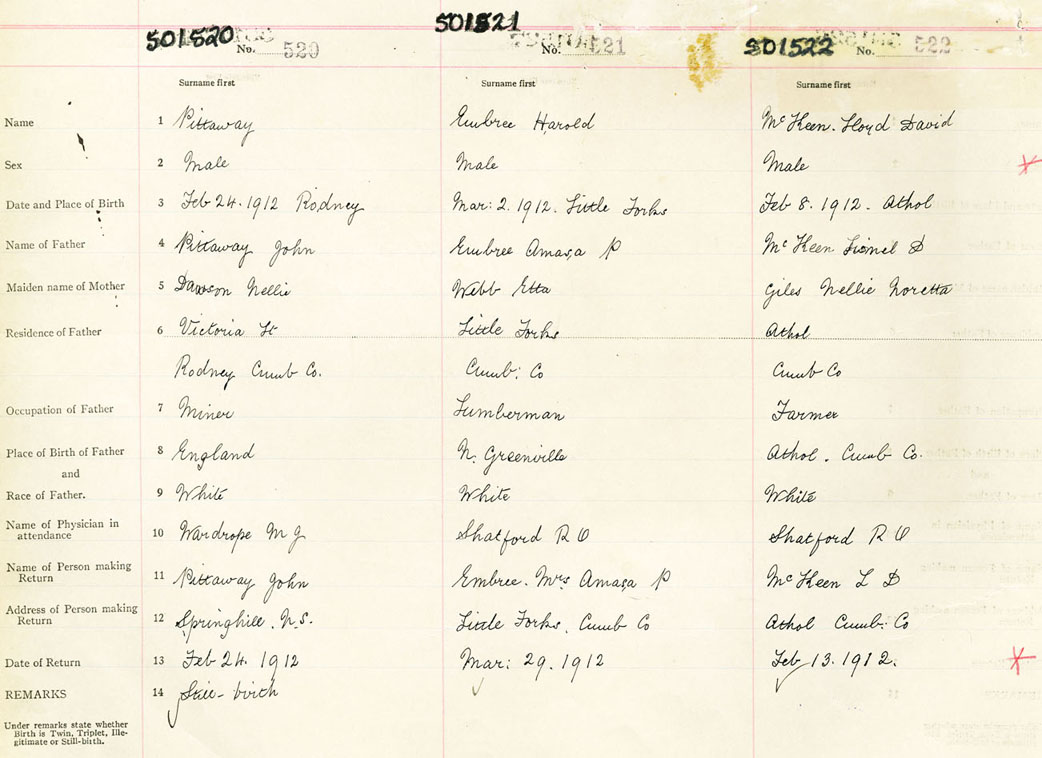 501520 No. 520 501521 No. 521 501522 No. 522
Surname first Surname first Surname first
Name 1 Pittaway Embree Harold McKeen. Lloyd David
Sex 2 Male Male Male
Date and Place of Birth 3 Feb 24. 1912 Rodney Mar: 2. 1912. Little Forks Feb 8. 1912. Athol
Name of Father 4 Pittaway John Embree Amasa P McKeen Lionel D
Maiden name of Mother 5 Dawson Nellie Webb Etta Giles Nellie Noretta
Residence of Father 6 Victoria St Little Forks Athol
Rodney Cumb Co. Cumb: Co Cumb Co
Occupation of Father 7 Miner Lumberman Farmer
Place of Birth of Father 8 England N. Greenville Athol. Cumb Co.
and
Race of Father. 9 White White White
Name of Physician in
attendance 10 Wardrope M J Shatford R O Shatford R O
Name of Person making
Return 11 Pittaway John Embree. Mrs Amasa P McKeen L D
Address of Person making
Return 12 Springhill. N.S. Little Forks, Cumb Co Athol Cumb: Co
Date of Return 13 Feb 24. 1912 Mar: 29. 1912 Feb 13. 1912.
REMARKS 14 Still-birth
Under remarks state whether
Birth is Twin, Triplet, Ille-
gitimate or Still-birth.